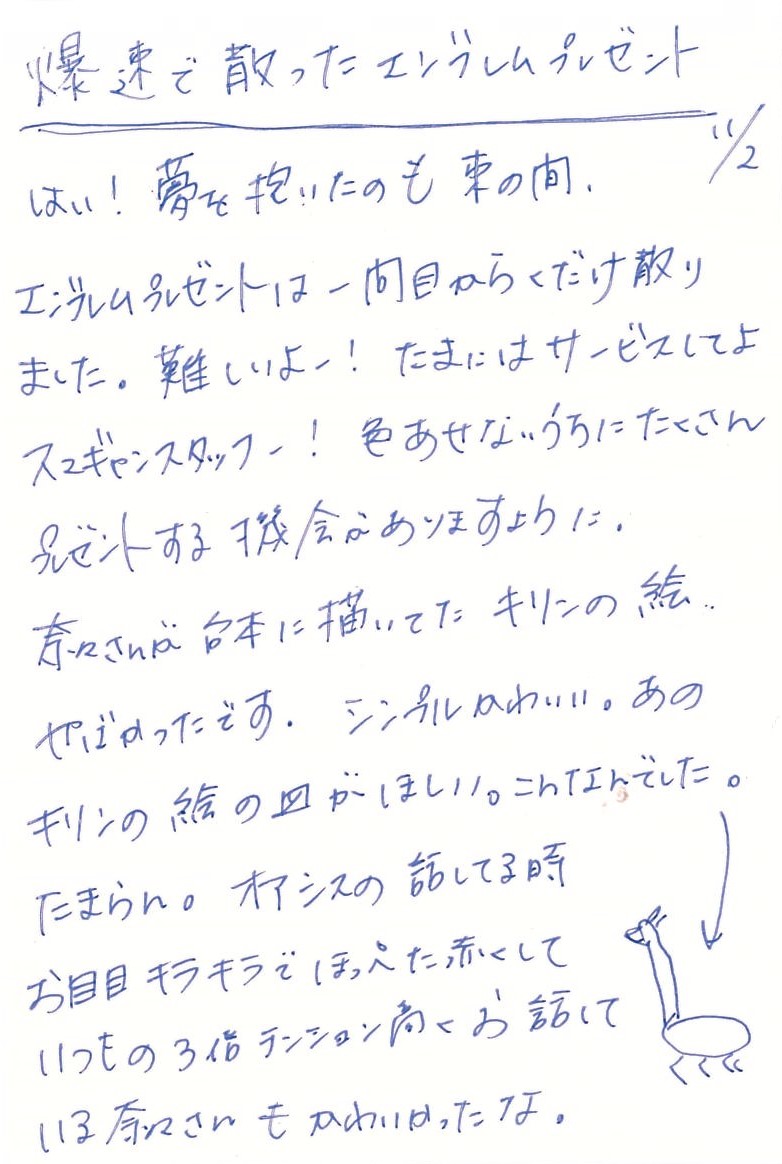 爆速で散ったエンブレムプレゼント
11/2
はい！夢を抱いたのも束の間、
エンブレムプレゼントは一問目からくだけ散り
ました。難しいよー！たまにはサービスしてよ
スコギャンスタッフー！色あせないうちにたくさん
プレゼントする機会がありますように。
奈々さんが台本に描いてたキリンの絵..
やばかったです。シンプルかわいい。あの
キリンの絵の皿がほしい。こんなんでした。
たまらん。オアシスの話してる時
お目目キラキラでほっぺた赤くして
いつもの3倍テンション高くお話して
いる奈々さんもかわいかったな。